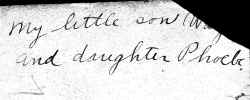 My little son
and daughter Phoebe